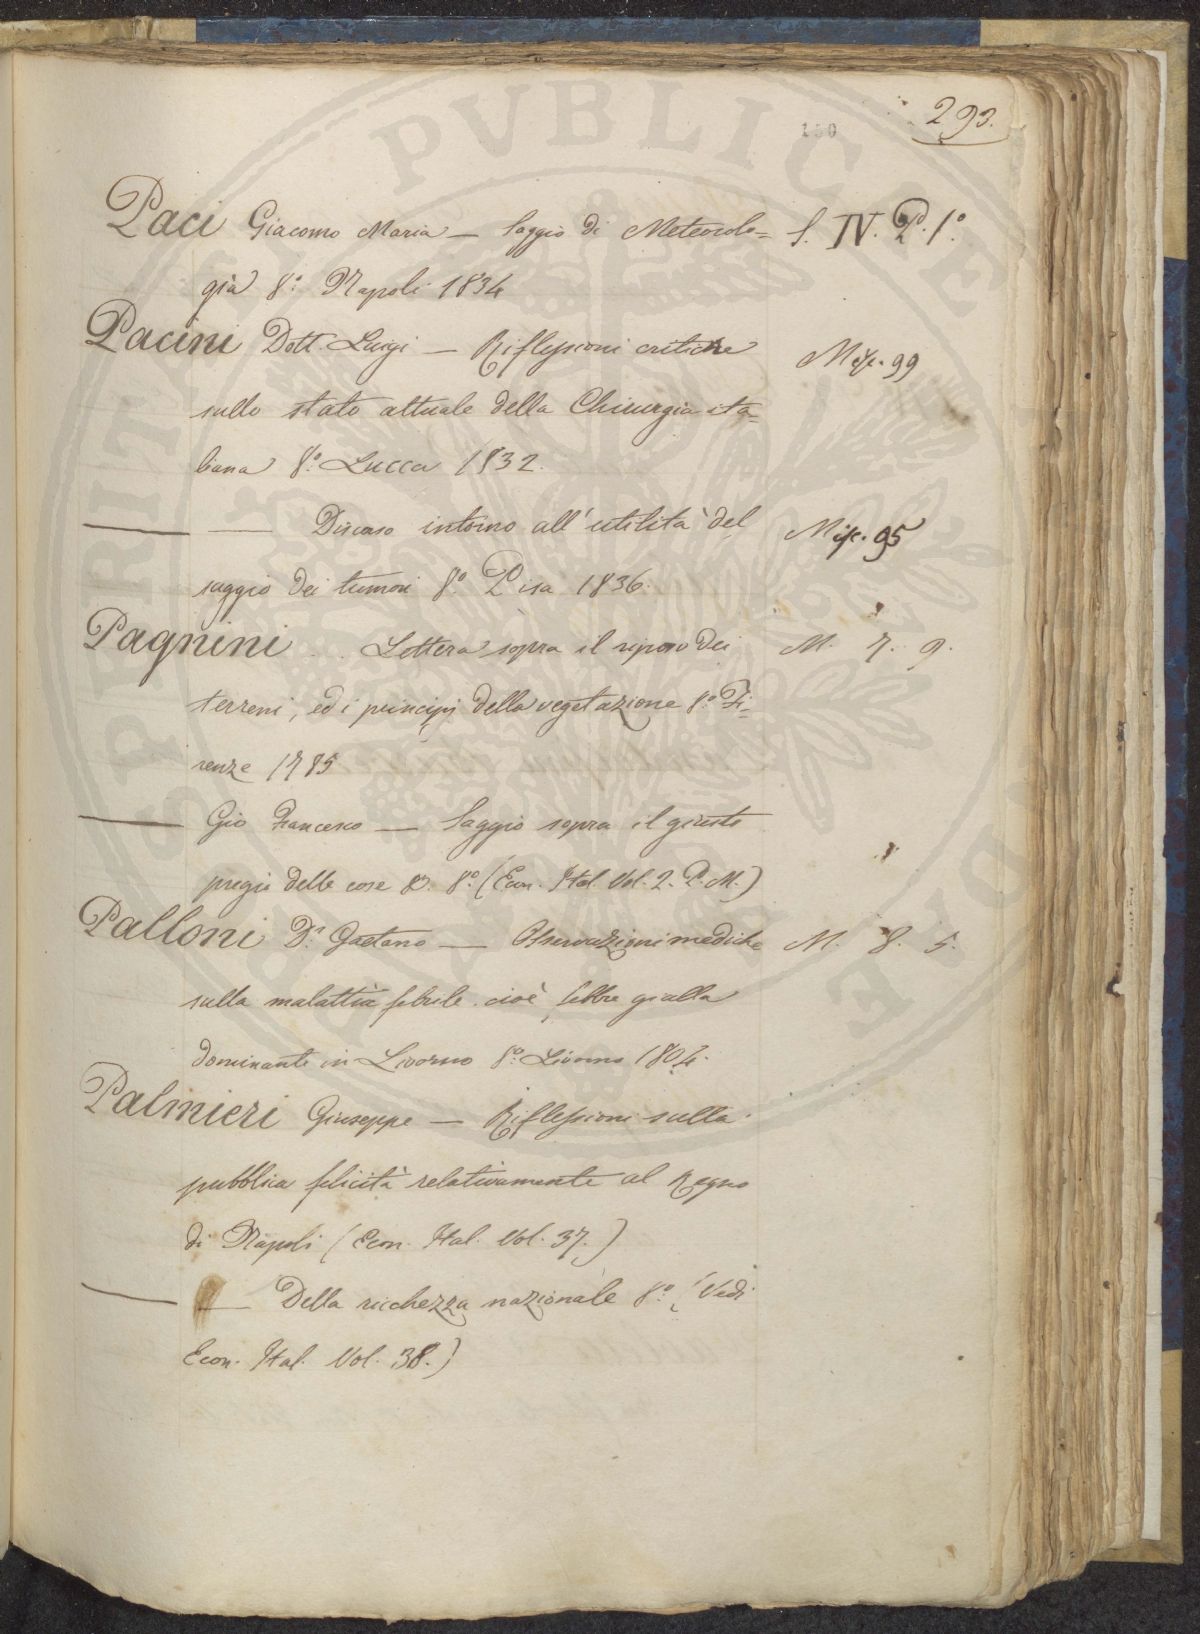 293.
150
Paci Giacomo Maria — Saggio di Meteorolo= S. IV. P.º 1.º
gia 8.º Napoli 1834
Pacini Dott. Luigi — Riflessioni critiche Misc. 99
sullo stato attuale della Chirurgia ita=
liana 8.º Lucca 1832.
— — Discorso intorno all'utilità del Misc. 95
saggio dei tumori 8.º Pisa 1836.
Pagnini . . Lettera sopra il riposo dei M. 7. 9.
terreni, ed i principj della vegetazione 8.º Fi=
renze 1785
— Gio Francesco — Saggio sopra il giusto
pregio delle cose &. 8.º (Econ. Ital. Vol. 2. P. M.)
Palloni D.r Gaetano — Osservazioni mediche M. 8. 5.
sulla malattia febrile cioè febbre gialla
dominante in Livorno 8.º Livorno 1804.
Palmieri Giuseppe — Riflessioni sulla
pubblica felicità relativamente al Regno
di Napoli (Econ. Ital. Vol. 37.)
— — Della ricchezza nazionale 8.º (Vedi
Econ. Ital. Vol. 38.)
PVBLICAE